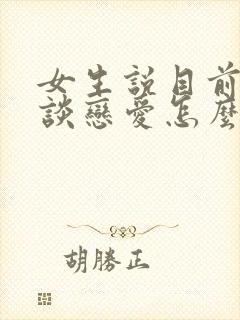 女生説目前
談戀愛怎麼
胡勝正